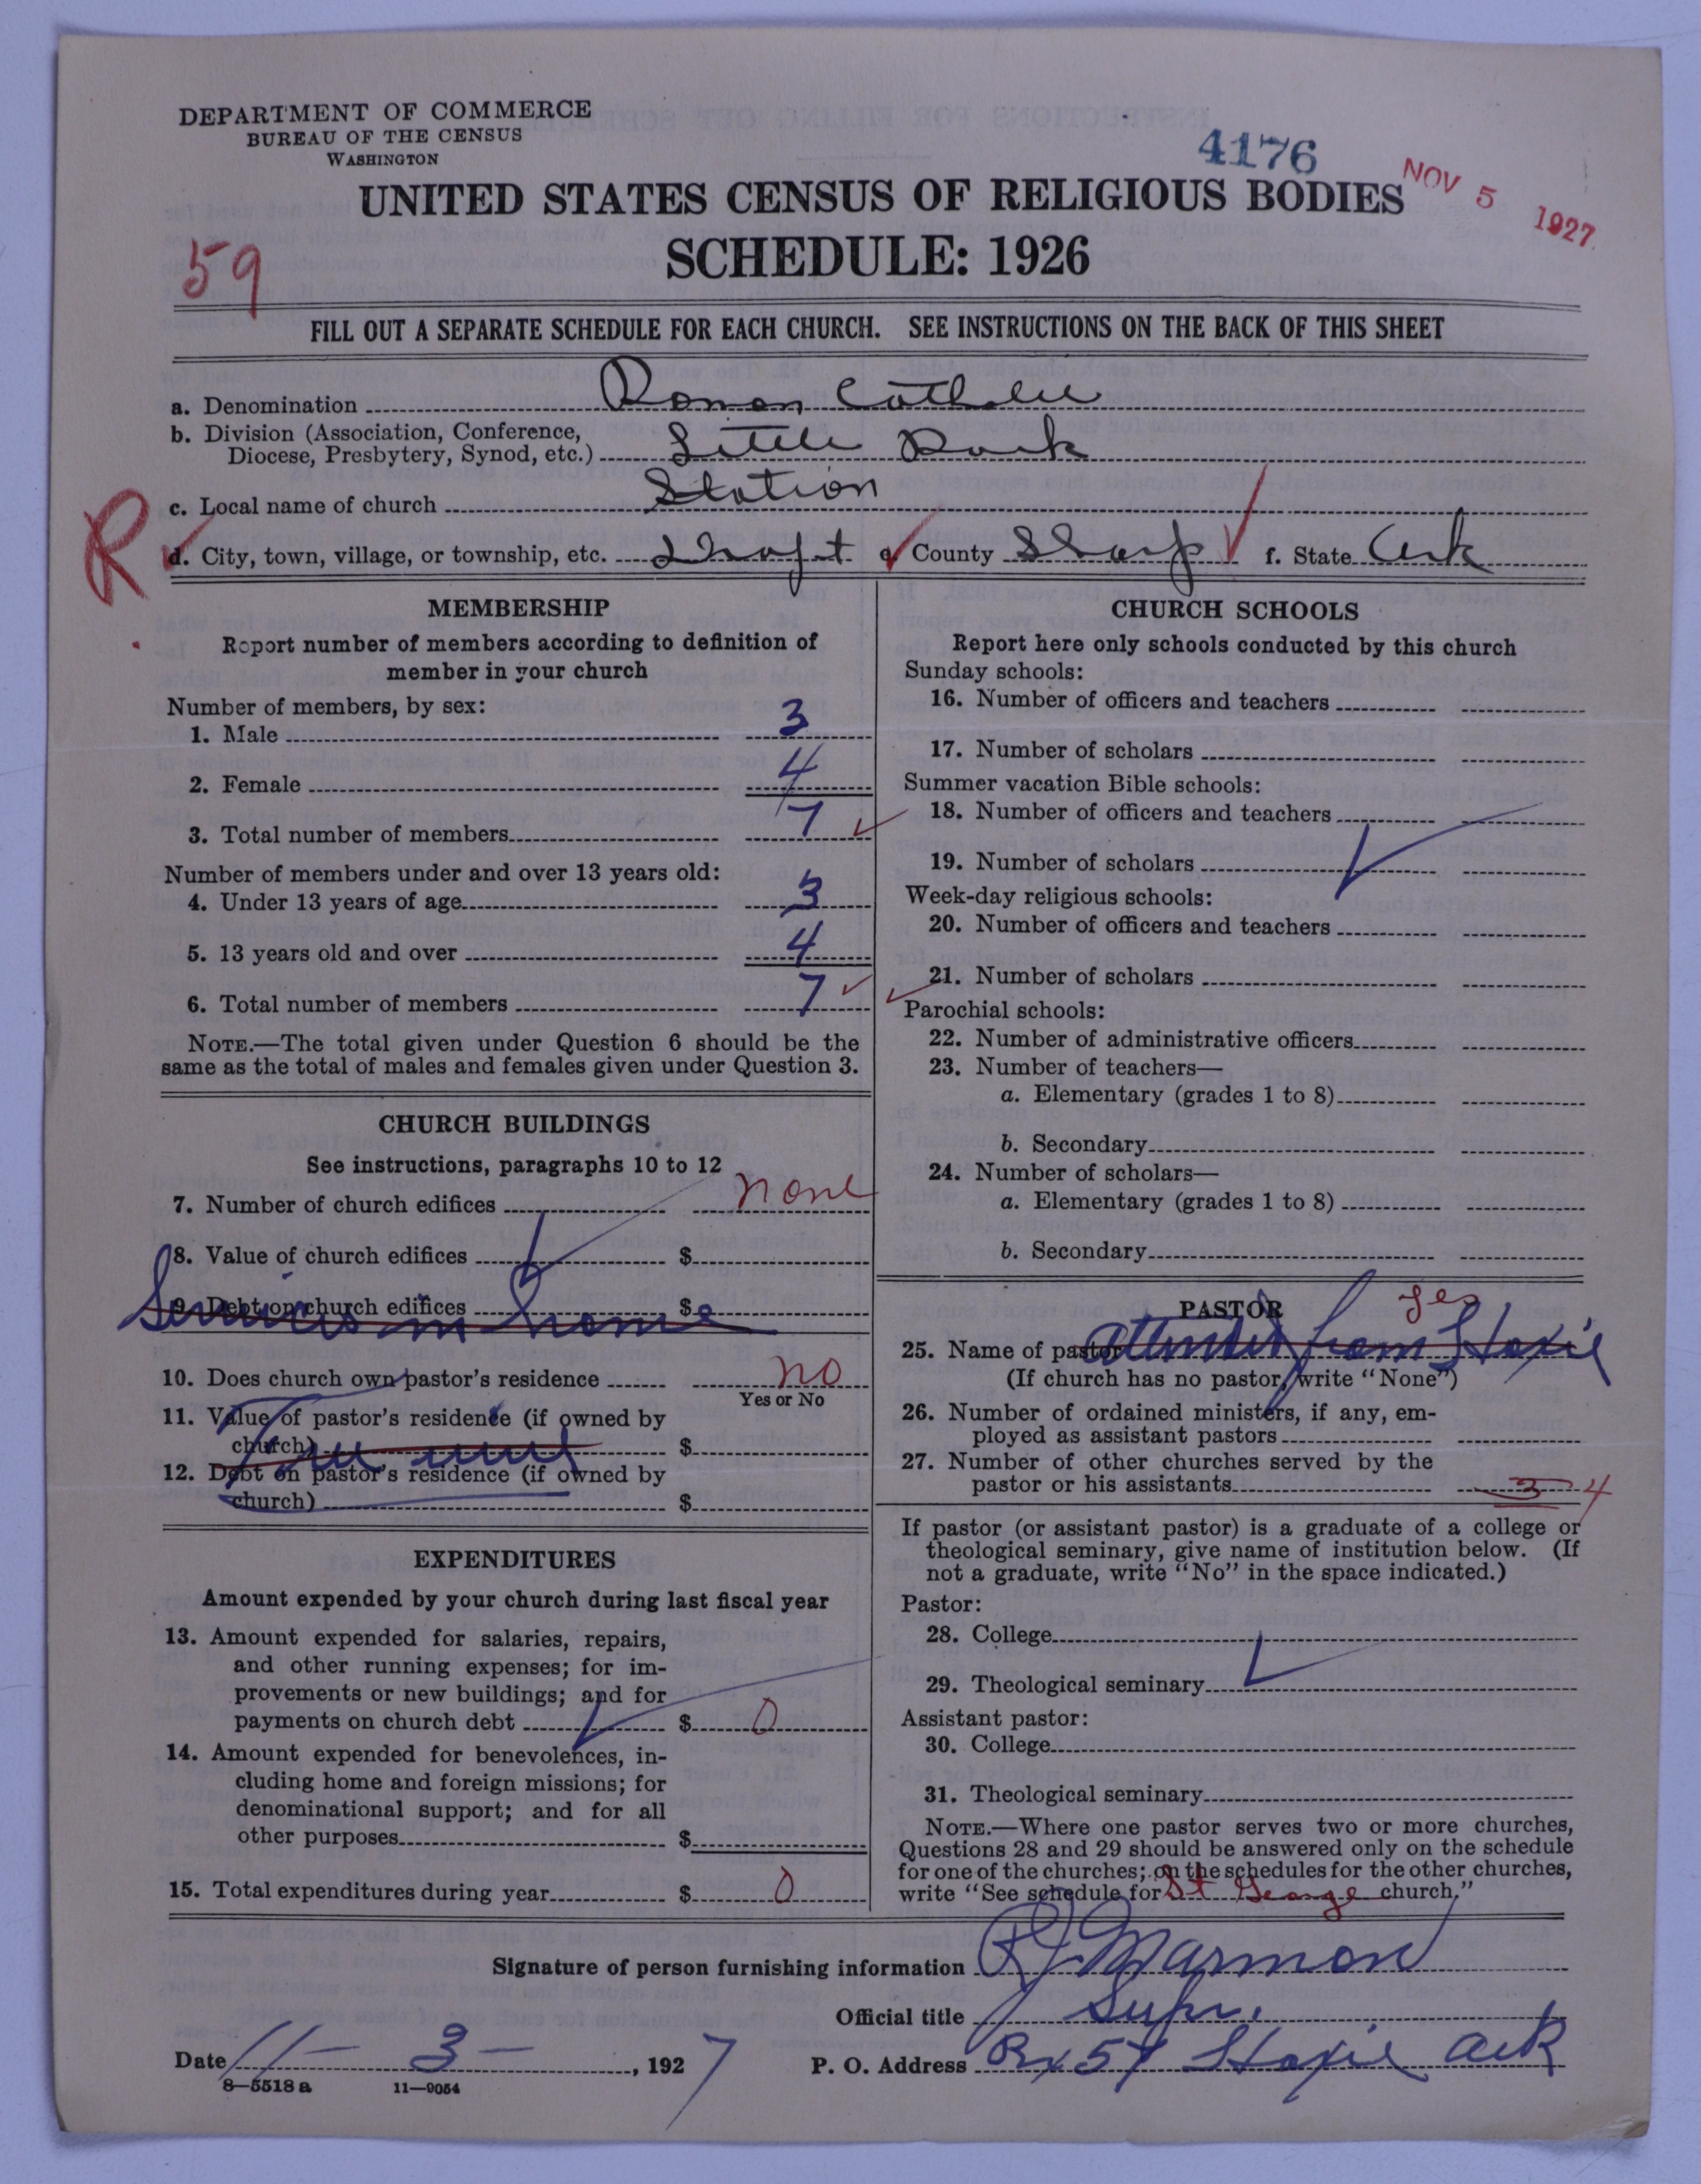 DEPARTMENT OF COMMERCE
BUREAU OF THE CENSUS
WASHINGTON
4176
NOV 5 1927
UNITED STATES CENSUS OF RELIGIOUS BODIES
SCHEDULE: 1926
59
FILL OUT A SEPARATE SCHEDULE FOR EACH CHURCH. SEE INSTRUCTIONS ON THE BACK OF THIS SHEET
a. Denomination Roman Catholic
b. Division (Association, Conference,
Diocese, Presbytery, Synod, etc.) Little Rock
c. Local name of church Station
R
d. City, town, village, or township, etc. e. County Sharp f. State Ark
MEMBERSHIP
Report number of members according to definition of
member in your church
Number of members, by sex:
1. Male 3
2. Female 4
3. Total number of members 7
Number of members under and over 13 years old:
4. Under 13 years of age 3
5. 13 years old and over 4
6. Total number of members 7
NOTE.—The total given under Question 6 should be the
same as the total of males and females given under Question 3.
CHURCH BUILDINGS
See instructions, paragraphs 10 to 12
7. Number of church edifices none
8. Value of church edifices $
9. Debt on church edifices $
Services in home
10. Does church own pastor's residence no
Yes or No
11. Value of pastor's residence (if owned by
church) $
12. Debt on pastor's residence (if owned by
church) $
EXPENDITURES
Amount expended by your church during last fiscal year
13. Amount expended for salaries, repairs,
and other running expenses; for im-
provements or new buildings; and for
payments on church debt $ 0
14. Amount expended for benevolences, in-
cluding home and foreign missions; for
denominational support; and for all
other purposes $
15. Total expenditures during year $ 0
CHURCH SCHOOLS
Report here only schools conducted by this church
Sunday schools:
16. Number of officers and teachers
17. Number of scholars
Summer vacation Bible schools:
18. Number of officers and teachers
19. Number of scholars
Week-day religious schools:
20. Number of officers and teachers
21. Number of scholars
Parochial schools:
22. Number of administrative officers
23. Number of teachers—
a. Elementary (grades 1 to 8)
b. Secondary
24. Number of scholars—
a. Elementary (grades 1 to 8)
b. Secondary
PASTOR yes
25. Name of pastor attended from Hoxie
(If church has no pastor, write "None")
26. Number of ordained ministers, if any, em-
ployed as assistant pastors
27. Number of other churches served by the
pastor or his assistants 3 4
If pastor (or assistant pastor) is a graduate of a college or
theological seminary, give name of institution below. (If
not a graduate, write "No" in the space indicated.)
Pastor:
28. College
29. Theological seminary
Assistant pastor:
30. College
31. Theological seminary
NOTE.—Where one pastor serves two or more churches,
Questions 28 and 29 should be answered only on the schedule
for one of the churches; on the schedules for the other churches,
write "See schedule for St George church."
Signature of person furnishing information Marmon
Official title Supr.
Date 11-3-, 1927 P. O. Address Bx 57 Hoxie Ark
8—5518 a 11—9054